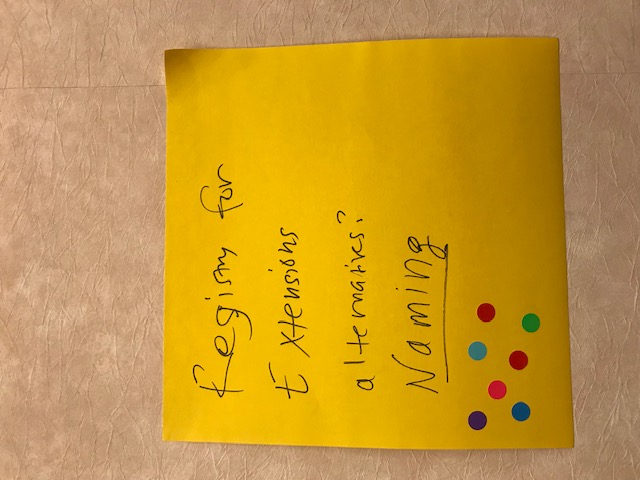 Registry for
Extensions
alternatives?
Naming